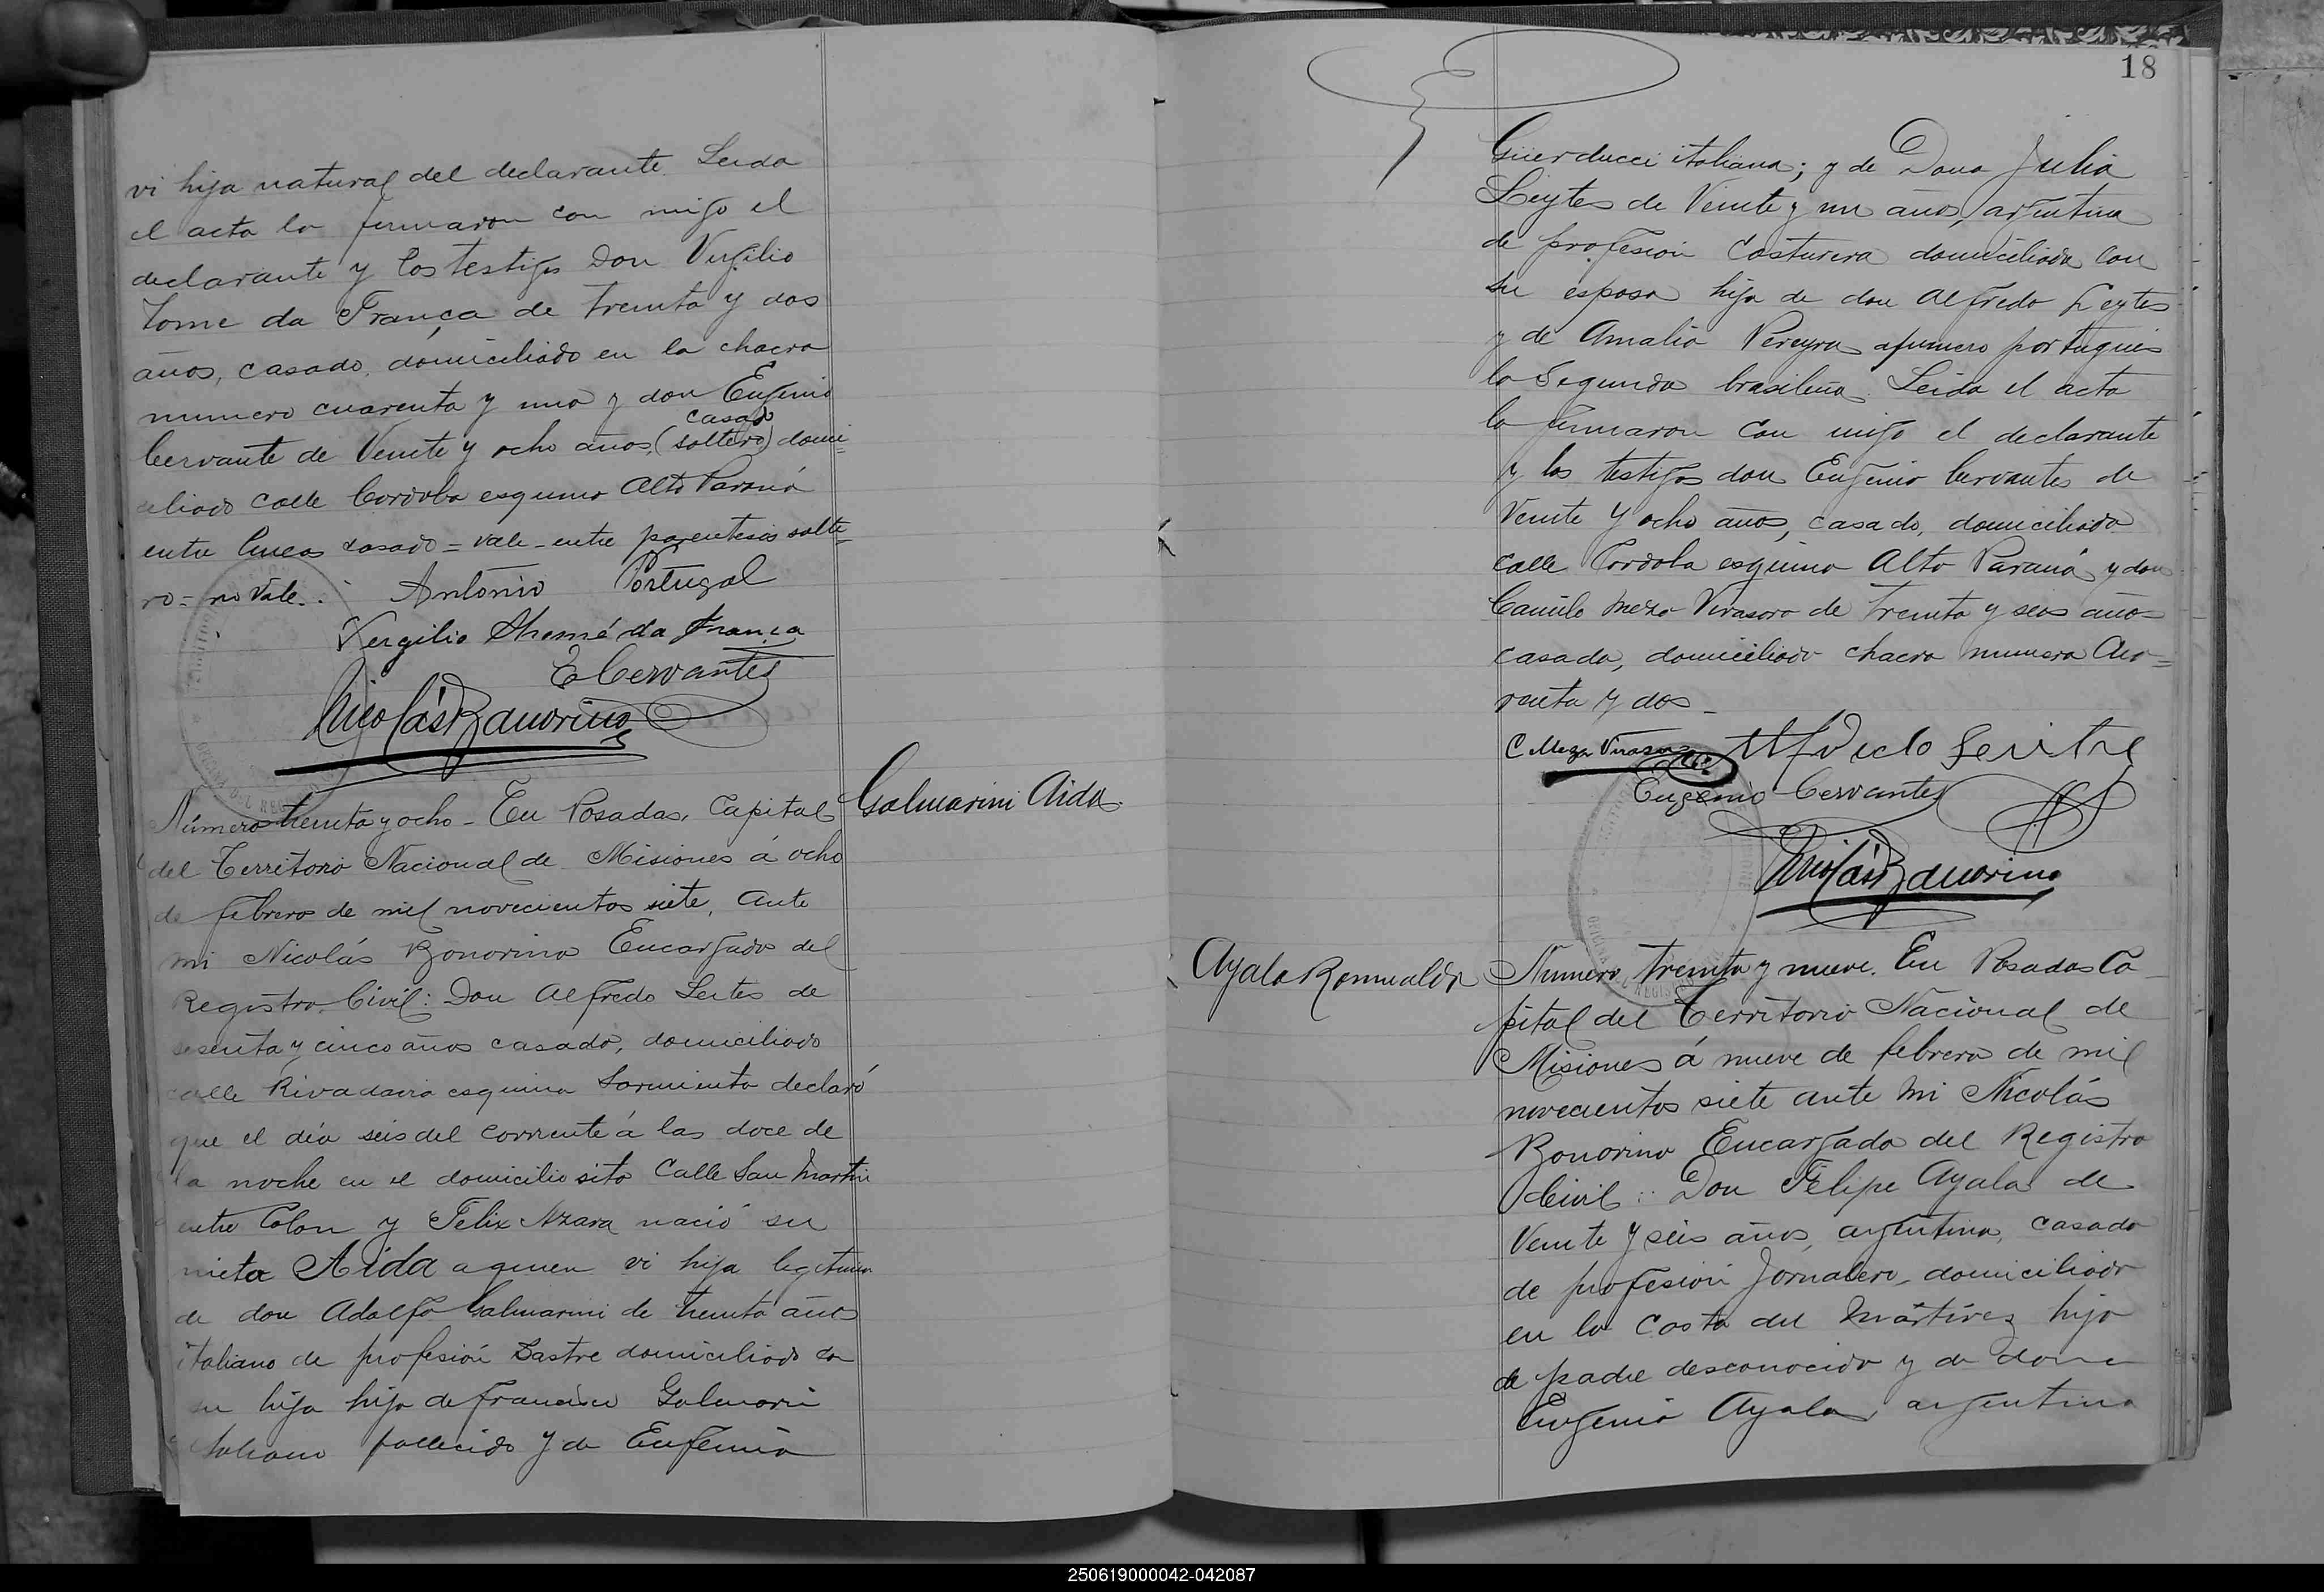 vi hija natural del declarante. Leida
el acta la firmaron con migo el
declarante y los testigos Don Virgilio
Tome da França de treinta y dos
años, casado, domiciliado en la chacra
numero cuarenta y uno y don Eugenio
casado
Cervante de Veinte y ocho años, (soltero) domi=
ciliado calle Cordoba esquina Alto Paraná
entre lineas casado = vale - entre parentesis solte=
ro = no vale.
Antonio Portugal
Vergilio Thomé da França
E Cervantes
Nicolás Bonorino
Número treinta y ocho - En Posadas, Capital
del Territorio Nacional de Misiones á ocho
de febrero de mil novecientos siete, Ante
mi Nicolás Bonorino Encargado del
Registro Civil: Don Alfredo Leites de
sesenta y cinco años casado, domiciliado
calle Rivadavia esquina Sarmiento declaró
que el día seis del corriente á las doce de
la noche en el domicilio sito Calle San Martin
entre Colon y Felix Azara nació su
nieta Aida a quien vi hija legitima
de don Adolfo Galmarini de treinta años
italiano de profesión Sastre domiciliado con
su hija hijo de Francisco Galmarini
italiano fallecido y de Eufemia
Galmarini Aida
18
Güerducci italiana; y de Dona Julia
Leytes de Veinte y un años, argentina
de profesión Costurera domiciliada con
su esposo hija de don Alfredo Leytes
y de Amalia Pereyra el primero portugues
la Segunda brasileña. Leida el acta
la firmaron con migo el declarante
y los testigos don Eugenio Cervantes de
Veinte y ocho años, casado, domiciliado
calle Cordoba esquina Alto Paraná y don
Camilo Meza Virasoro de treinta y seis años
casado, domiciliado chacra numero Cua=
renta y dos -
C Meza Virasoro
Eugenio Cervantes
Nicolás Bonorino
Ayala Romualdo
Numero treinta y nueve. En Posadas Ca
pital del Territorio Nacional de
Misiones á nueve de febrero de mil
novecientos siete ante mi Nicolás
Bonorino Encargado del Registro
Civil: Don Felipe Ayala de
Veinte y seis años, argentino, casado
de profesión Jornalero, domiciliado
en la Costa del Mártires hijo
de padre desconocido y de dona
Eugenia Ayala, argentina
250619000042-042087